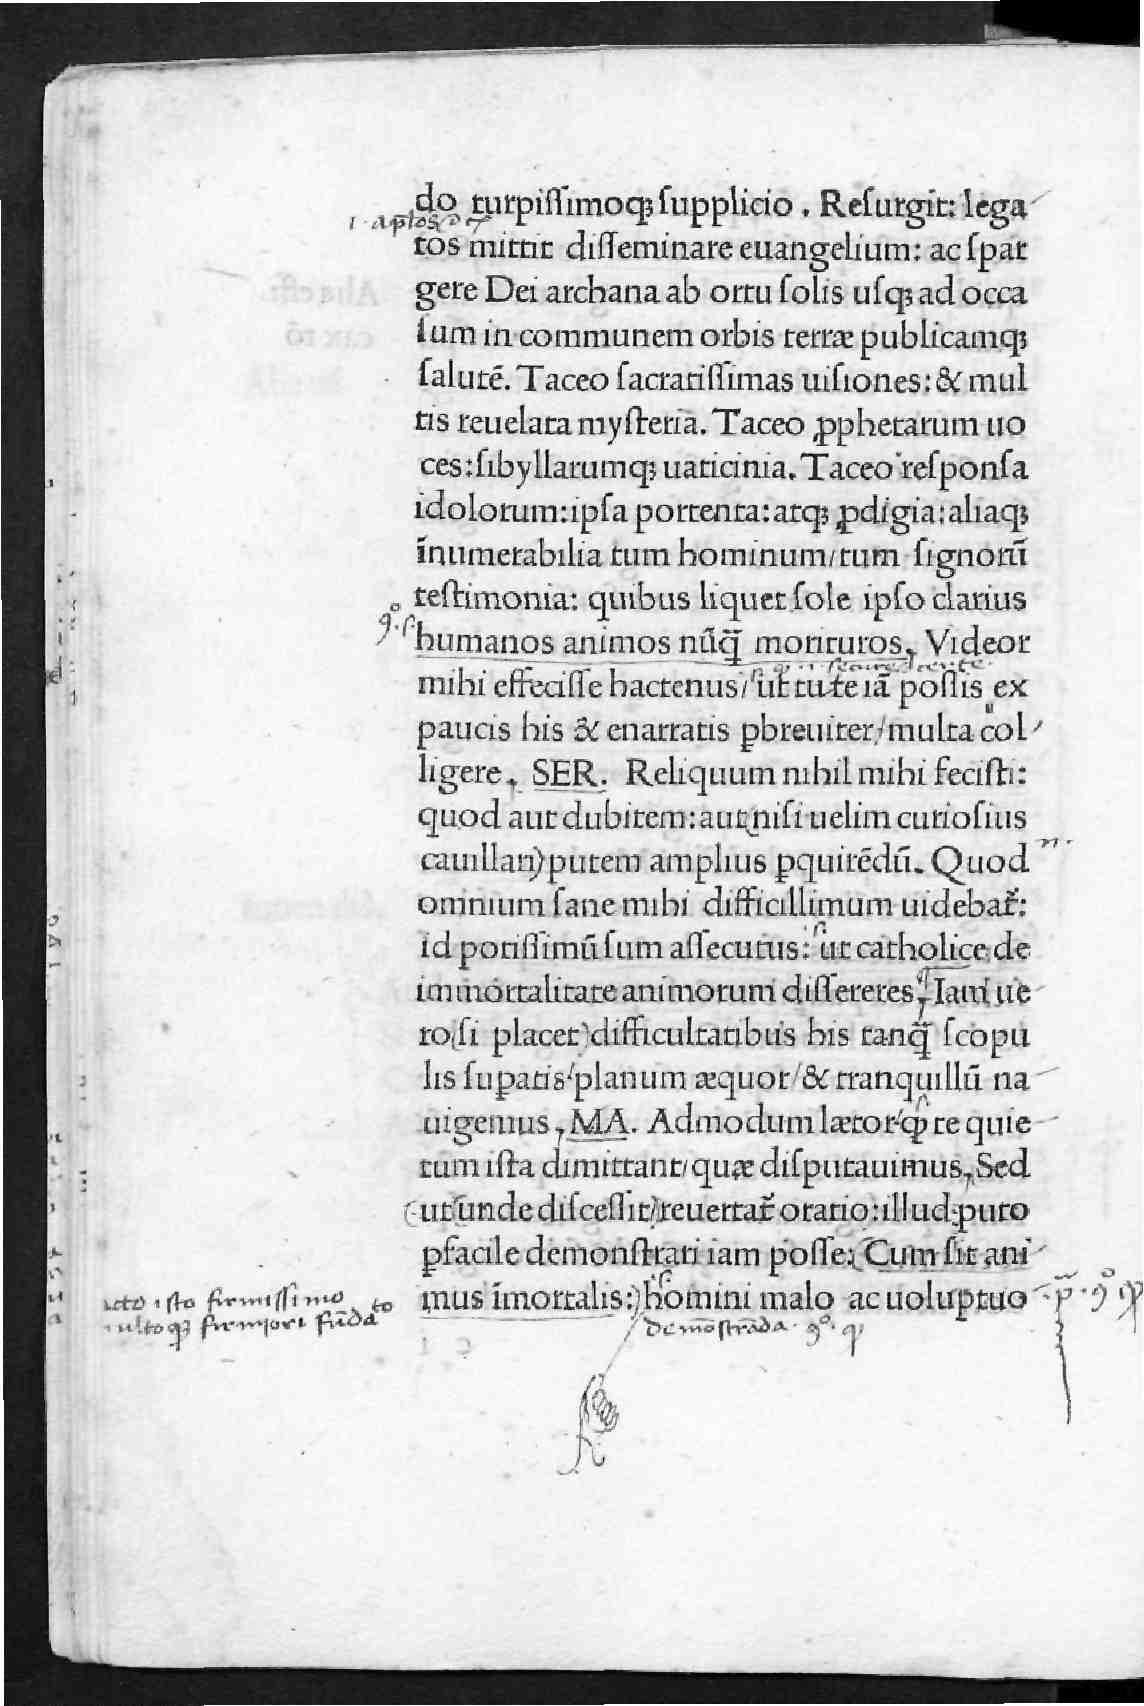 do turpiſſimoqꝫ ſupplicio. Reſurgit: lega
tos mittit diſſeminare euangelium: ac ſpar
gere Dei archana ab ortu ſolis uſqꝫ ad occa
ſum in communem orbis terræ publicamqꝫ
ſalutē. Taceo ſacratiſſimas uiſiones: & mul
tis reuelata myſteria. Taceo ꝓphetarum uo
ces: ſibyllarumqꝫ uaticinia. Taceo reſponſa
idolorum: ipſa portenta: atqꝫ ꝓdigia: aliaqꝫ
īnumerabilia tum hominum/ tum ſignorū
teſtimonia: quibus liquet ſole ipſo clarius
humanos animos nūq̄ morituros, Videor
mihi effeciſſe hactenus/ ut tute iā poſſis ex
paucis his & enarratis ꝑbreuiter/ multa col
ligere, SER. Reliquum nihil mihi feciſti:
quod aut dubitem: aut (niſi uelim curioſius
cauillari) putem amplius ꝑquirēdū. Quod
omnium ſane mihi difficillimum uidebat᷑:
id potiſſimū ſum aſſecutus: ut catholice de
immortalitate animorum diſſereres, Iam ue
ro (ſi placet) difficultatibus his tanq̄ ſcopu
lis ſuꝑatis/ planum æquor/ & tranquillū na
uigemus, MA. Admodum lætor/ ꝙ te quie
tum iſta dimittant/ quæ diſputauimus, Sed
(ut unde diſceſſit) reuertat᷑ oratio: illud puto
ꝑfacile demonſtrari iam poſſe: (Cum ſit ani
mus īmortalis:) homini malo ac uoluptuo
iſto firmiſſimo
firmiori fūdato
demōſtrāda